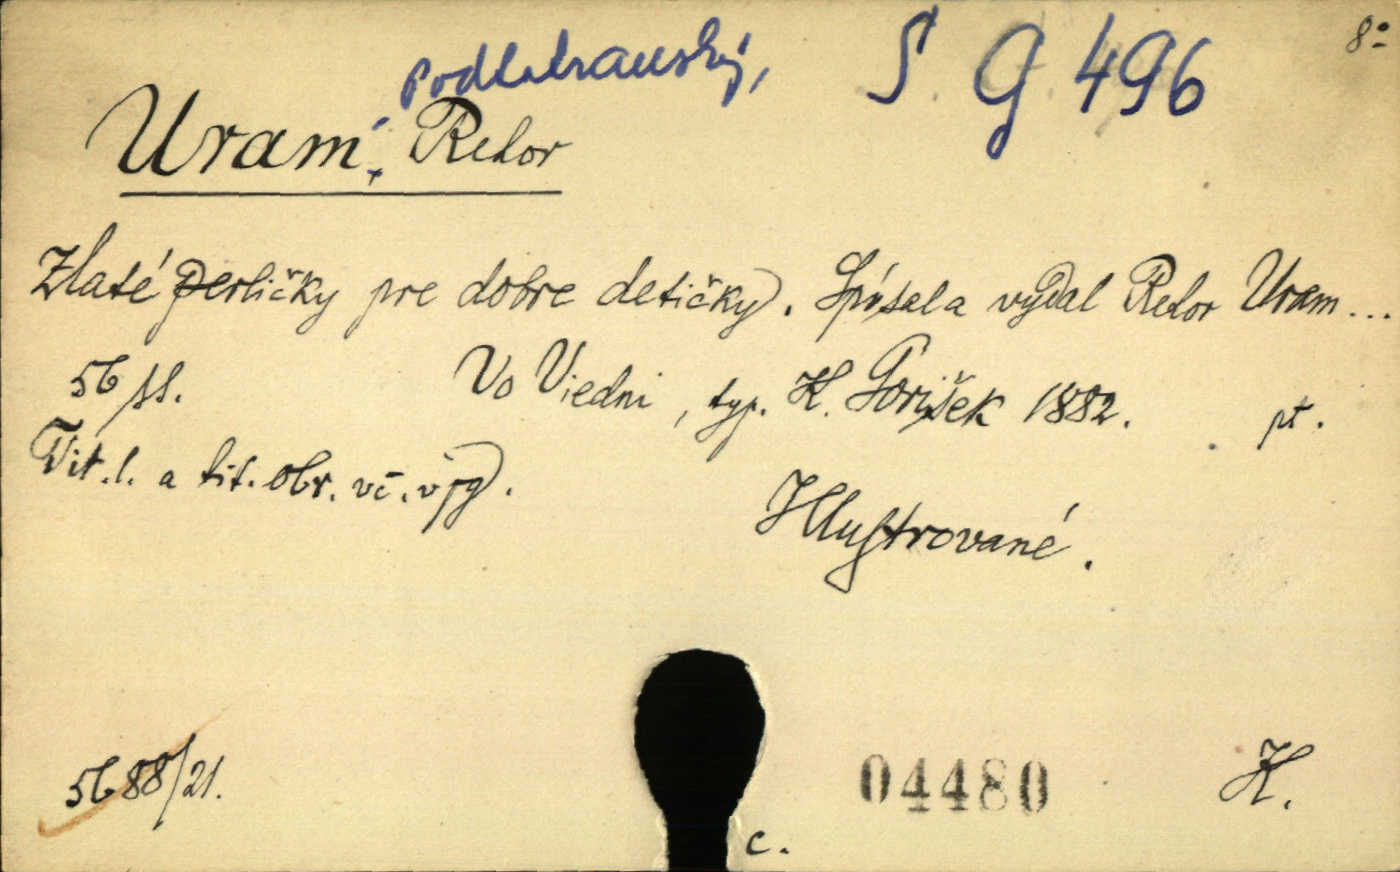 Podtatranský, S G 496 8°
Uram, Rehor
Zlaté perličky pre dobre detičky). Spísal a vydal Rehor Uram...
56 ss. Vo Viedni, typ. K. Gorišek 1882. pt.
Tit. l. a tit. obr. vč. v pg).
Illustrované.
5688/21. 04480 K.
c.